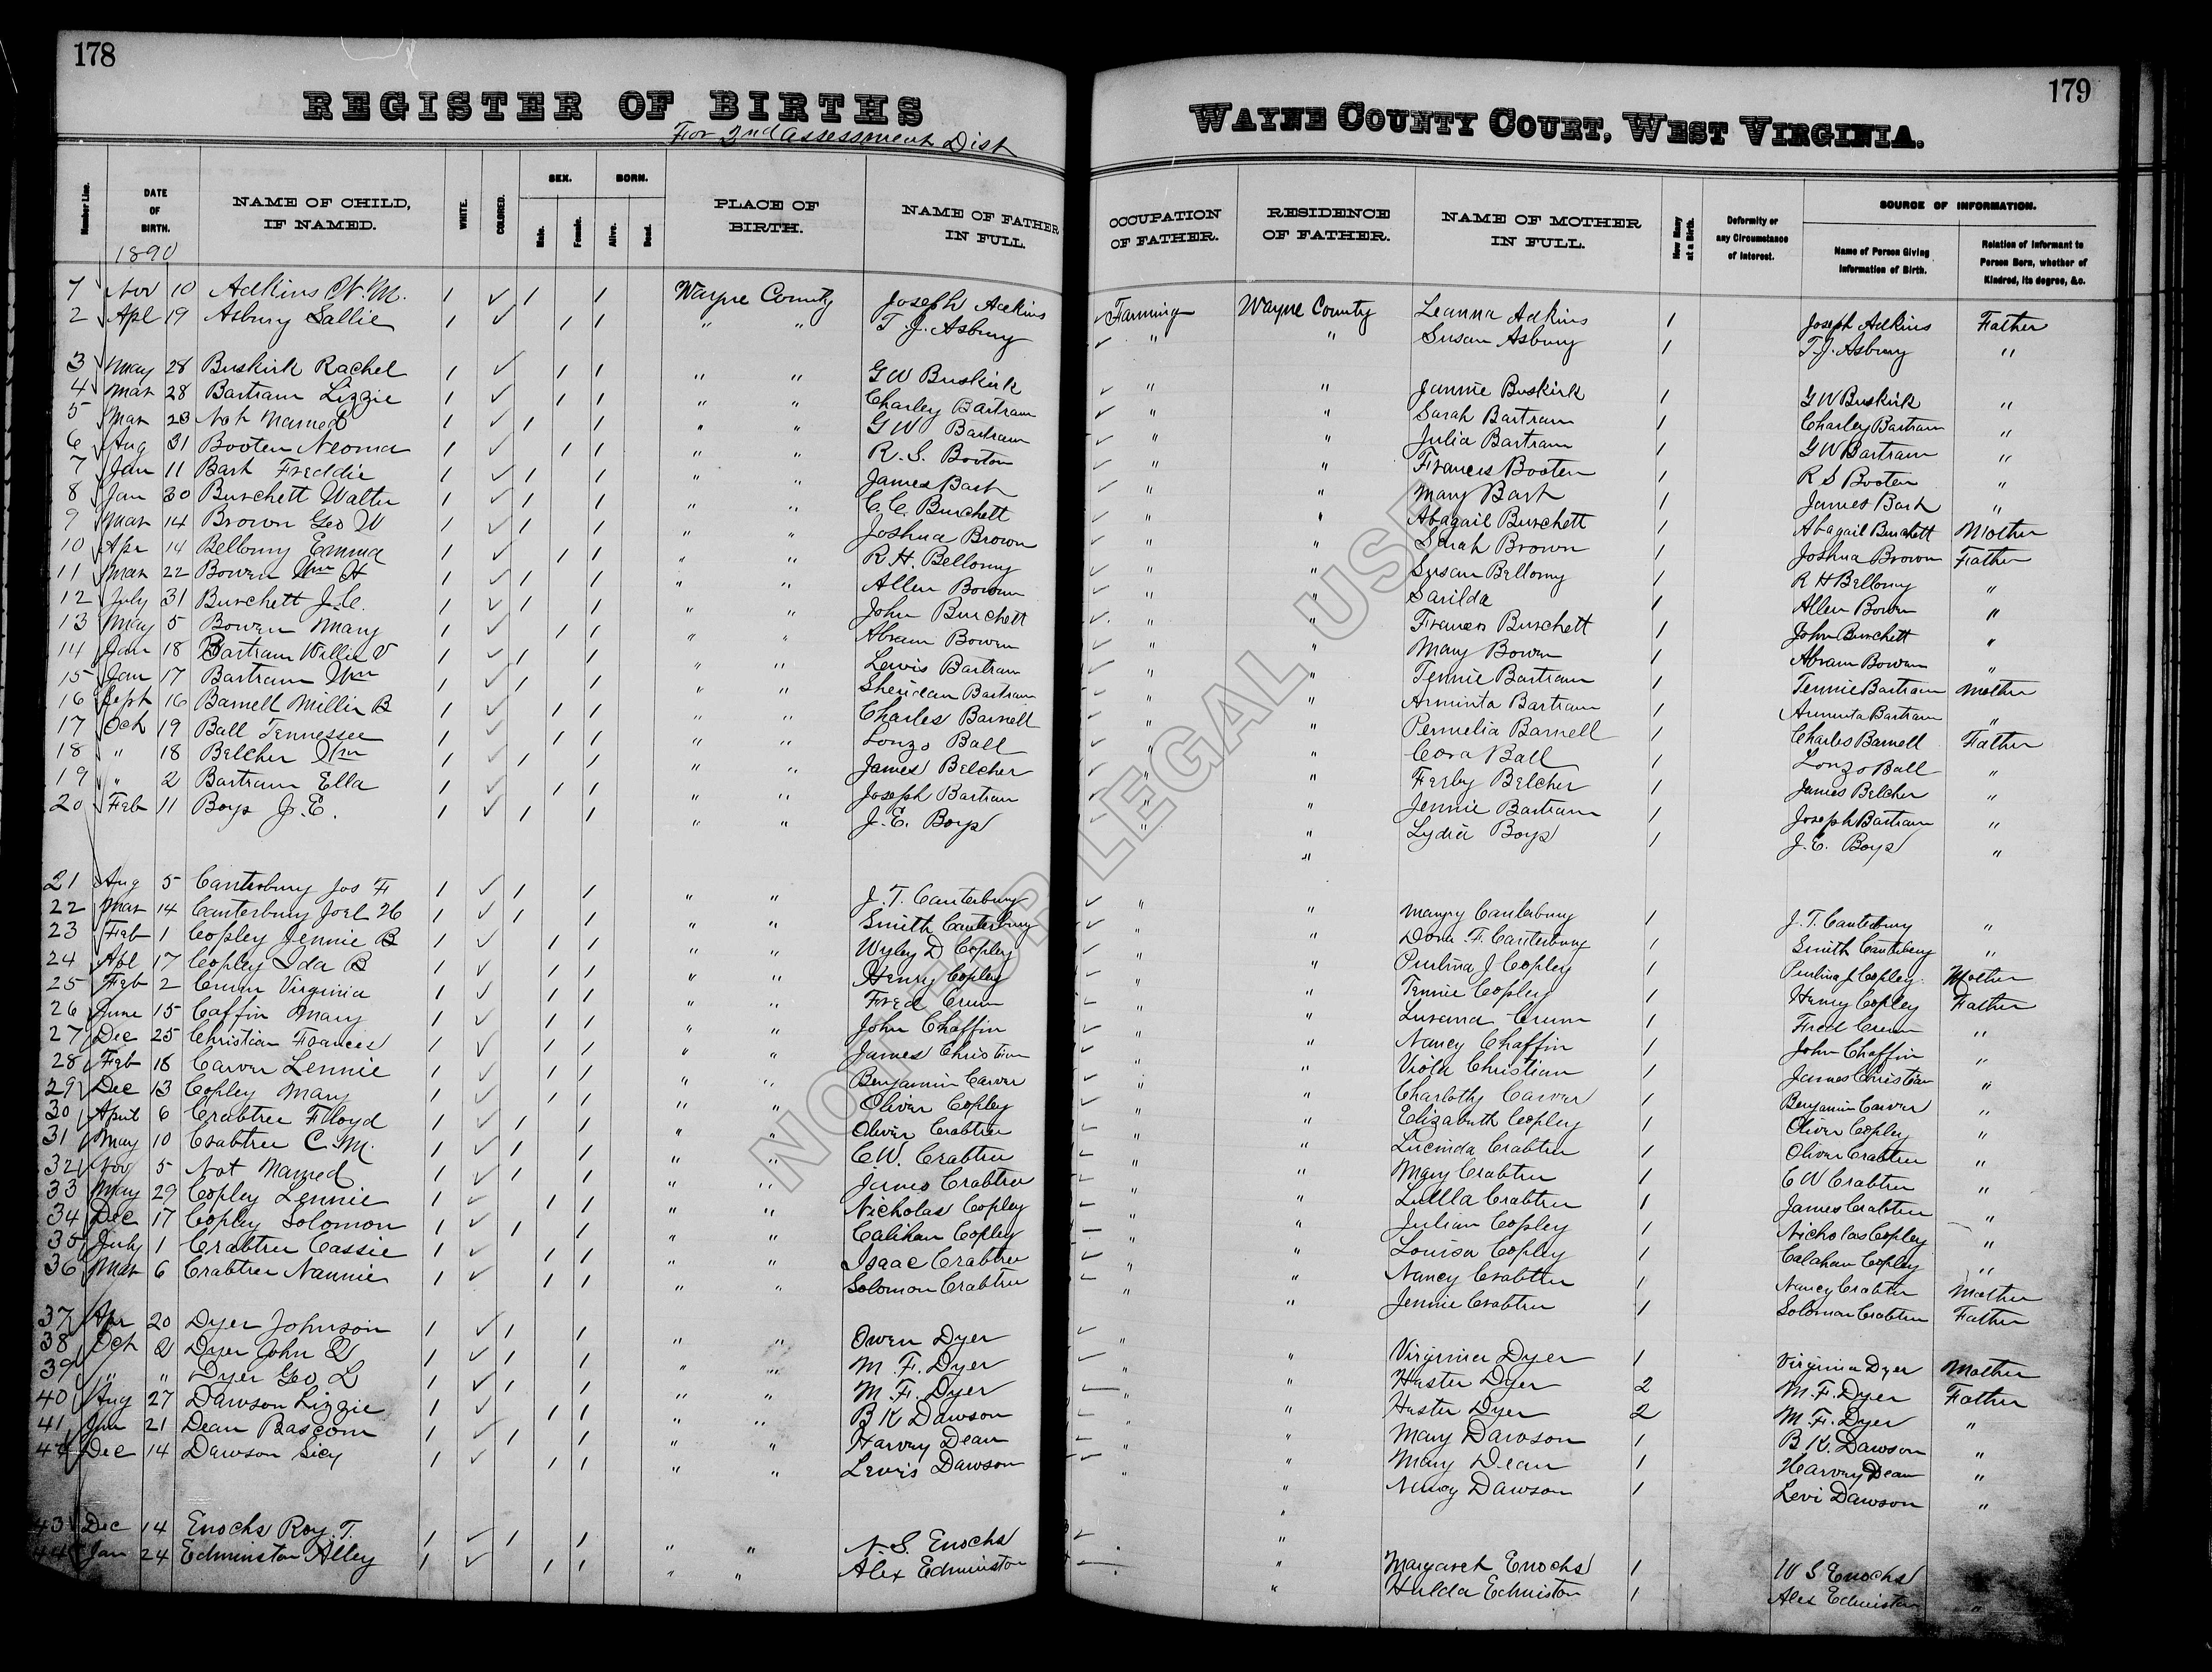 178
REGISTER OF BIRTHS
For 2nd Assessment Dist
Number Line.
DATE OF BIRTH.
1890
NAME OF CHILD, IF NAMED.
WHITE.
COLORED.
SEX.
Male.
Female.
BORN.
Alive.
Dead.
PLACE OF BIRTH.
NAME OF FATHER IN FULL.
1 Nov 10 Adkins W.M. 1 ✓ 1 1 Wayne County Joseph Adkins
2 Apl 19 Asbury Sallie 1 ✓ 1 1 " " T.J. Asbury
3 May 28 Buskirk Rachel 1 ✓ 1 1 " " G W Buskirk
4 Mar 28 Bartram Lizzie 1 ✓ 1 1 " " Charley Bartram
5 Mar 23 Not Named 1 ✓ 1 1 " " G W Bartram
6 Aug 31 Booten Neoma 1 ✓ 1 1 " " R.S. Booton
7 Jan 11 Bash Freddie 1 ✓ 1 1 " " James Bash
8 Jan 30 Burchett Walter 1 ✓ 1 1 " " C.C. Burchett
9 Mar 14 Brown Geo W 1 ✓ 1 1 " " Joshua Brown
10 Apr 14 Bellomy Emma 1 ✓ 1 1 " " R.H. Bellomy
11 Mar 22 Bowen Wm H 1 ✓ 1 1 " " Allen Bowen
12 July 31 Burchett J.C. 1 ✓ 1 1 " " John Burchett
13 May 5 Bowen Mary 1 ✓ 1 1 " " Abram Bowen
14 Jan 18 Bartram Willie V 1 ✓ 1 1 " " Lewis Bartram
15 Jan 17 Bartram Wm 1 ✓ 1 1 " " Sheridan Bartram
16 Sept 16 Barnell Millie B 1 ✓ 1 1 " " Charles Barnell
17 Oct 19 Ball Tennessee 1 ✓ 1 1 " " Lonzo Ball
18 " 18 Belcher Wm 1 ✓ 1 1 " " James Belcher
19 " 2 Bartram Ella 1 ✓ 1 1 " " Joseph Bartram
20 Feb 11 Boys J.E. 1 ✓ 1 1 " " J.E. Boys
21 Aug 5 Canterbury Jos F 1 ✓ 1 1 " " J.T. Canterbury
22 Mar 14 Canterbury Joel H 1 ✓ 1 1 " " Smith Canterbury
23 Feb 1 Copley Jennie B 1 ✓ 1 1 " " Wyley D Copley
24 Apl 17 Copley Ida B 1 ✓ 1 1 " " Henry Copley
25 Feb 2 Crum Virginia 1 ✓ 1 1 " " Fred Crum
26 June 15 Caffin Mary 1 ✓ 1 1 " " John Chaffin
27 Dec 25 Christian Frances 1 ✓ 1 1 " " James Christian
28 Feb 18 Carver Lennie 1 ✓ 1 1 " " Benjamin Carver
29 Dec 13 Copley Mary 1 ✓ 1 1 " " Oliver Copley
30 April 6 Crabtree Floyd 1 ✓ 1 1 " " Oliver Crabtree
31 May 10 Crabtree C.M. 1 ✓ 1 1 " " C.W. Crabtree
32 Nov 5 Not Named 1 ✓ 1 1 " " James Crabtree
33 May 29 Copley Lennie 1 ✓ 1 1 " " Nicholas Copley
34 Dec 17 Copley Solomon 1 ✓ 1 1 " " Calihan Copley
35 July 1 Crabtree Cassie 1 ✓ 1 1 " " Isaac Crabtree
36 Mar 6 Crabtree Nannie 1 ✓ 1 1 " " Solomon Crabtree
37 Apr 20 Dyer Johnson 1 ✓ 1 1 " " Owen Dyer
38 Oct 2 Dyer John 1 ✓ 1 1 " " M.F. Dyer
39 " " Dyer Geo L 1 ✓ 1 1 " " M.F. Dyer
40 Aug 27 Dawson Lizzie 1 ✓ 1 1 " " B K Dawson
41 Jan 21 Dean Bascom 1 ✓ 1 1 " " Harvey Dean
42 Dec 14 Dawson Sicy 1 ✓ 1 1 " " Lewis Dawson
43 Dec 14 Enochs Roy.T. 1 ✓ 1 1 " " S. Enochs
44 Jan 24 Edminston Alley 1 ✓ 1 1 " " Alex Edminston
179
WAYNE COUNTY COURT, WEST VIRGINIA.
OCCUPATION OF FATHER.
RESIDENCE OF FATHER.
NAME OF MOTHER IN FULL.
How Many at a Birth.
Deformity or any Circumstance of Interest.
SOURCE OF INFORMATION.
Name of Person Giving Information of Birth.
Relation of Informant to Person Born, whether of Kindred, its degree, &c.
✓ Farming Wayne County Leanna Adkins 1 Joseph Adkins Father
✓ " " Susan Asbury 1 T.J. Asbury "
✓ " " Jannie Buskirk 1 G W Buskirk "
✓ " " Sarah Bartram 1 Charley Bartram "
✓ " " Julia Bartram 1 G W Bartram "
✓ " " Frances Booten 1 R S Booten "
✓ " " Mary Bash 1 James Bash "
✓ " " Abagail Burchett 1 Abagail Burchett Mother
✓ " " Sarah Brown 1 Joshua Brown Father
✓ " " Susan Bellomy 1 R H Bellomy "
✓ " " Sarilda 1 Allen Bowen "
✓ " " Frances Burchett 1 John Burchett "
✓ " " Mary Bowen 1 Abram Bowen "
✓ " " Tennie Bartram 1 Tennie Bartram Mother
✓ " " Arminta Bartram 1 Arminta Bartram "
✓ " " Permelia Barnell 1 Charles Barnell Father
✓ " " Cora Ball 1 Lonzo Ball "
✓ " " Ferby Belcher 1 James Belcher "
✓ " " Jennie Bartram 1 Joseph Bartram "
✓ " " Lydia Boys 1 J.E. Boys "
✓ " " Canterbury 1 J.T. Canterbury "
✓ " " Dora F. Canterbury 1 Smith Canterbury "
✓ " " Purlina J Copley 1 Purlina J Copley Mother
✓ " " Tennie Copley 1 Henry Copley Father
✓ " " Lurana Crum 1 Fred Crum "
✓ " " Nancy Chaffin 1 John Chaffin "
✓ " " Viola Christian 1 James Christian "
✓ " " Charlotty Carver 1 Benjamin Carver "
✓ " " Elizabeth Copley 1 Oliver Copley "
✓ " " Lucinda Crabtree 1 Oliver Crabtree "
✓ " " Mary Crabtree 1 C W Crabtree "
✓ " " Luella Crabtree 1 James Crabtree "
✓ " " Julian Copley 1 Nicholas Copley "
✓ " " Louisa Copley 1 Calahan Copley "
✓ " " Nancy Crabtree 1 Nancy Crabtree Mother
✓ " " Jennie Crabtree 1 Solomon Crabtree Father
✓ " " Virginia Dyer 1 Virginia Dyer Mother
✓ " " Huster Dyer 2 M.F. Dyer Father
" " Huster Dyer 2 M.F. Dyer "
✓ " " Mary Dawson 1 B K. Dawson "
✓ " " Mary Dean 1 Hearvey Dean "
✓ " " Nancy Dawson 1 Levi Dawson "
✓ " Margaret Enochs 1 W S Enochs
" Hulda Edmiston 1 Alex Edmiston "
NOT FOR LEGAL USE